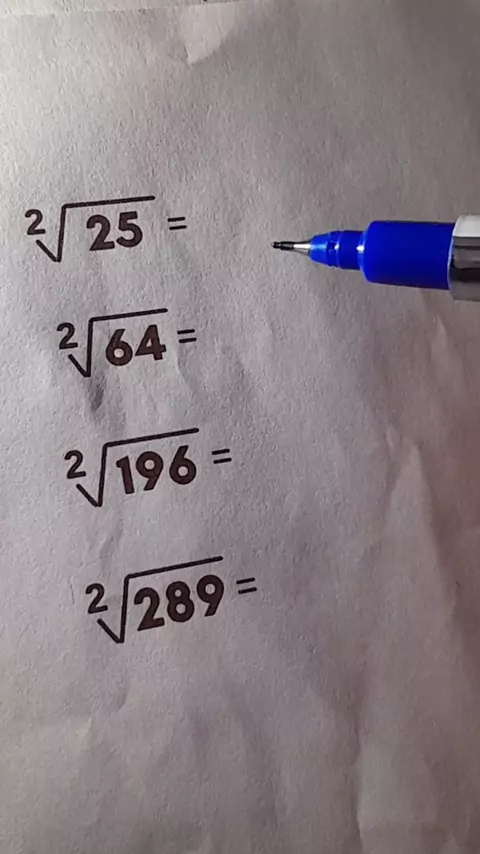 ²√25 =
²√64 =
²√196 =
²√289 =